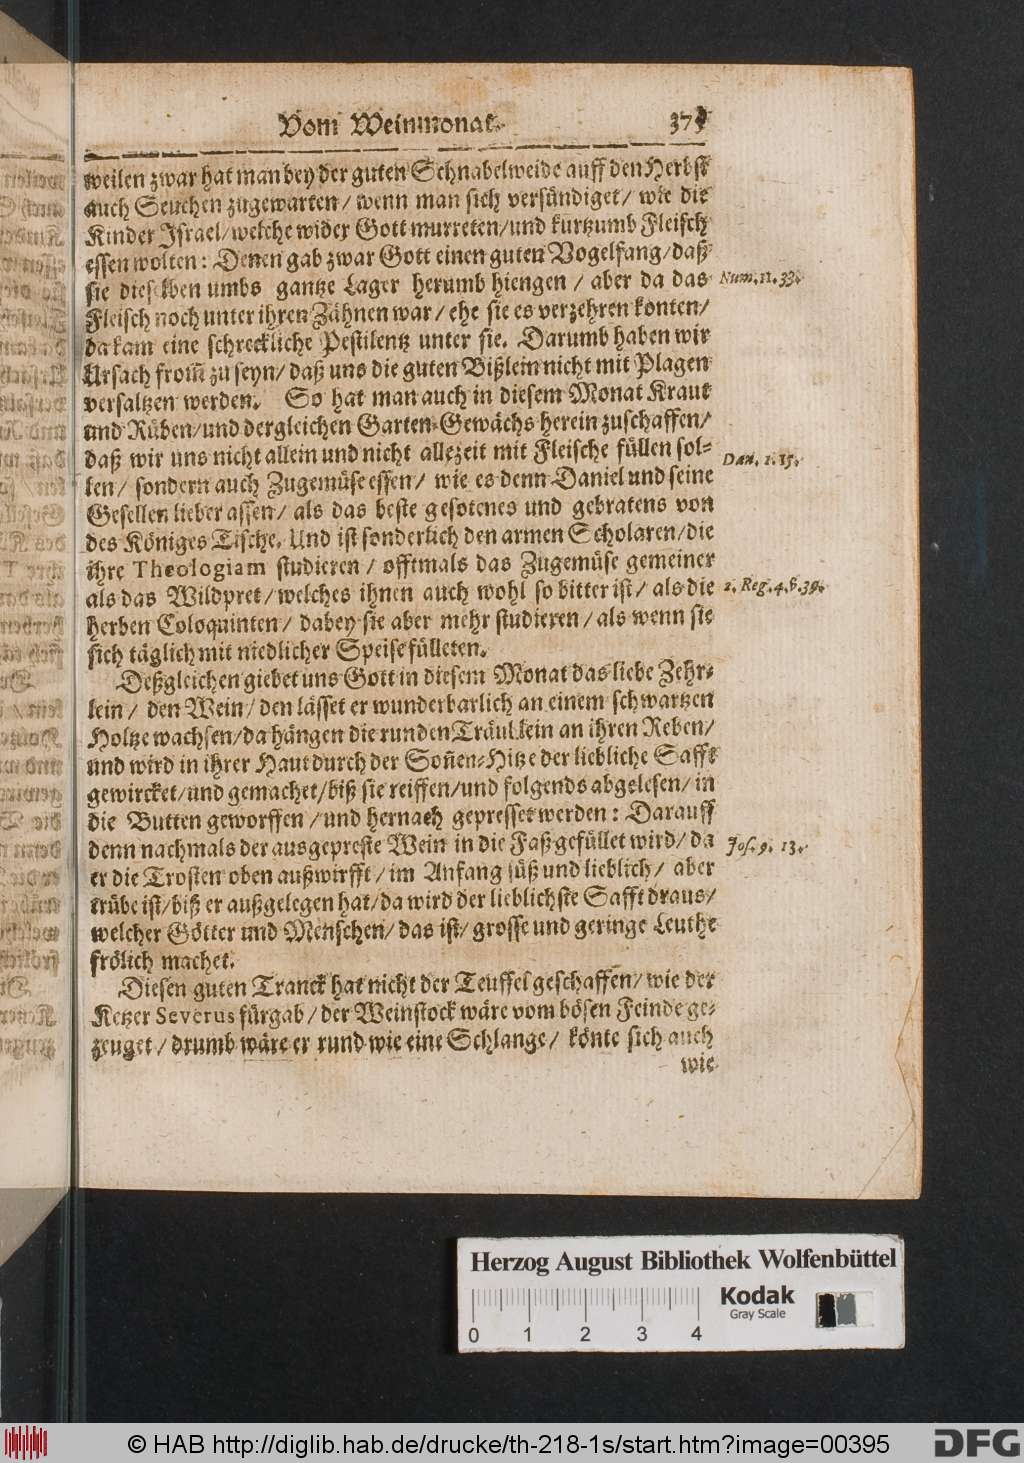 Vom Weinmonat. 375
weilen zwar hat man bey der guten Schnabelweide auff den Herbst
auch Seuchen zugewarten / wenn man sich versündiget / wie die
Kinder Israel / welche wider Gott murreten / und kurtzumb Fleisch
essen wolten: Denen gab zwar Gott einen guten Vogelfang / daß
sie dieselben umbs gantze Lager herumb hiengen / aber da das Num. 11. 33.
Fleisch noch unter ihren Zähnen war / ehe sie es verzehren konten /
da kam eine schreckliche Pestilentz unter sie. Darumb haben wir
Ursach from̃ zu seyn / daß uns die guten Bißlein nicht mit Plagen
versaltzen werden. So hat man auch in diesem Monat Kraut
und Rüben / und dergleichen Garten-Gewächs herein zuschaffen /
daß wir uns nicht allein und nicht allezeit mit Fleische füllen sol- Dan. 1. 15.
len / sondern auch Zugemüse essen / wie es denn Daniel und seine
Gesellen lieber assen / als das beste gesotenes und gebratens von
des Königes Tische. Und ist sonderlich den armen Scholaren / die
ihre Theologiam studieren / offtmals das Zugemüse gemeiner
als das Wildpret / welches ihnen auch wohl so bitter ist / als die 2. Reg. 4. v. 39.
herben Coloquinten / dabey sie aber mehr studieren / als wenn sie
sich täglich mit niedlicher Speise fülleten.
Deßgleichen giebet uns Gott in diesem Monat das liebe Zehr-
lein / den Wein / den lässet er wunderbarlich an einem schwartzen
Holtze wachsen / da hängen die runden Träublein an ihren Reben /
und wird in ihrer Haut durch der Son̄en-Hitze der liebliche Safft
gewircket / und gemachet / biß sie reiffen / und folgends abgelesen / in
die Butten geworffen / und hernach gepresset werden: Darauff
denn nachmals der ausgepreste Wein in die Faß gefüllet wird / da Jos. 9. 13.
er die Trosten oben außwirfft / im Anfang süß und lieblich / aber
trübe ist / biß er außgelegen hat / da wird der lieblichste Safft draus /
welcher Götter und Menschen / das ist / grosse und geringe Leuthe
frölich machet.
Diesen guten Tranck hat nicht der Teuffel geschaffen / wie der
Ketzer Severus fürgab / der Weinstock wäre vom bösen Feinde ge-
zeuget / drumb wäre er rund wie eine Schlange / könte sich auch
wie
Herzog August Bibliothek Wolfenbüttel
Kodak
Gray Scale
0 1 2 3 4
© HAB http://diglib.hab.de/drucke/th-218-1s/start.htm?image=00395
DFG